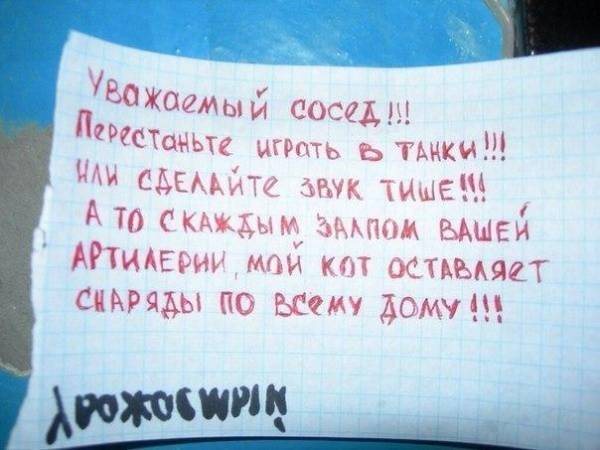 Уважаемый сосед!!!
Перестаньте играть в танки!!!
Или сделайте звук тише!!!
А ТО СКАЖДЫМ ЗАЛПОМ ВАШЕЙ
АРТИЛЕРИИ, МОЙ КОТ ОСТАВЛЯЕТ
СНАРЯДЫ ПО ВСЕМУ ДОМУ!!!